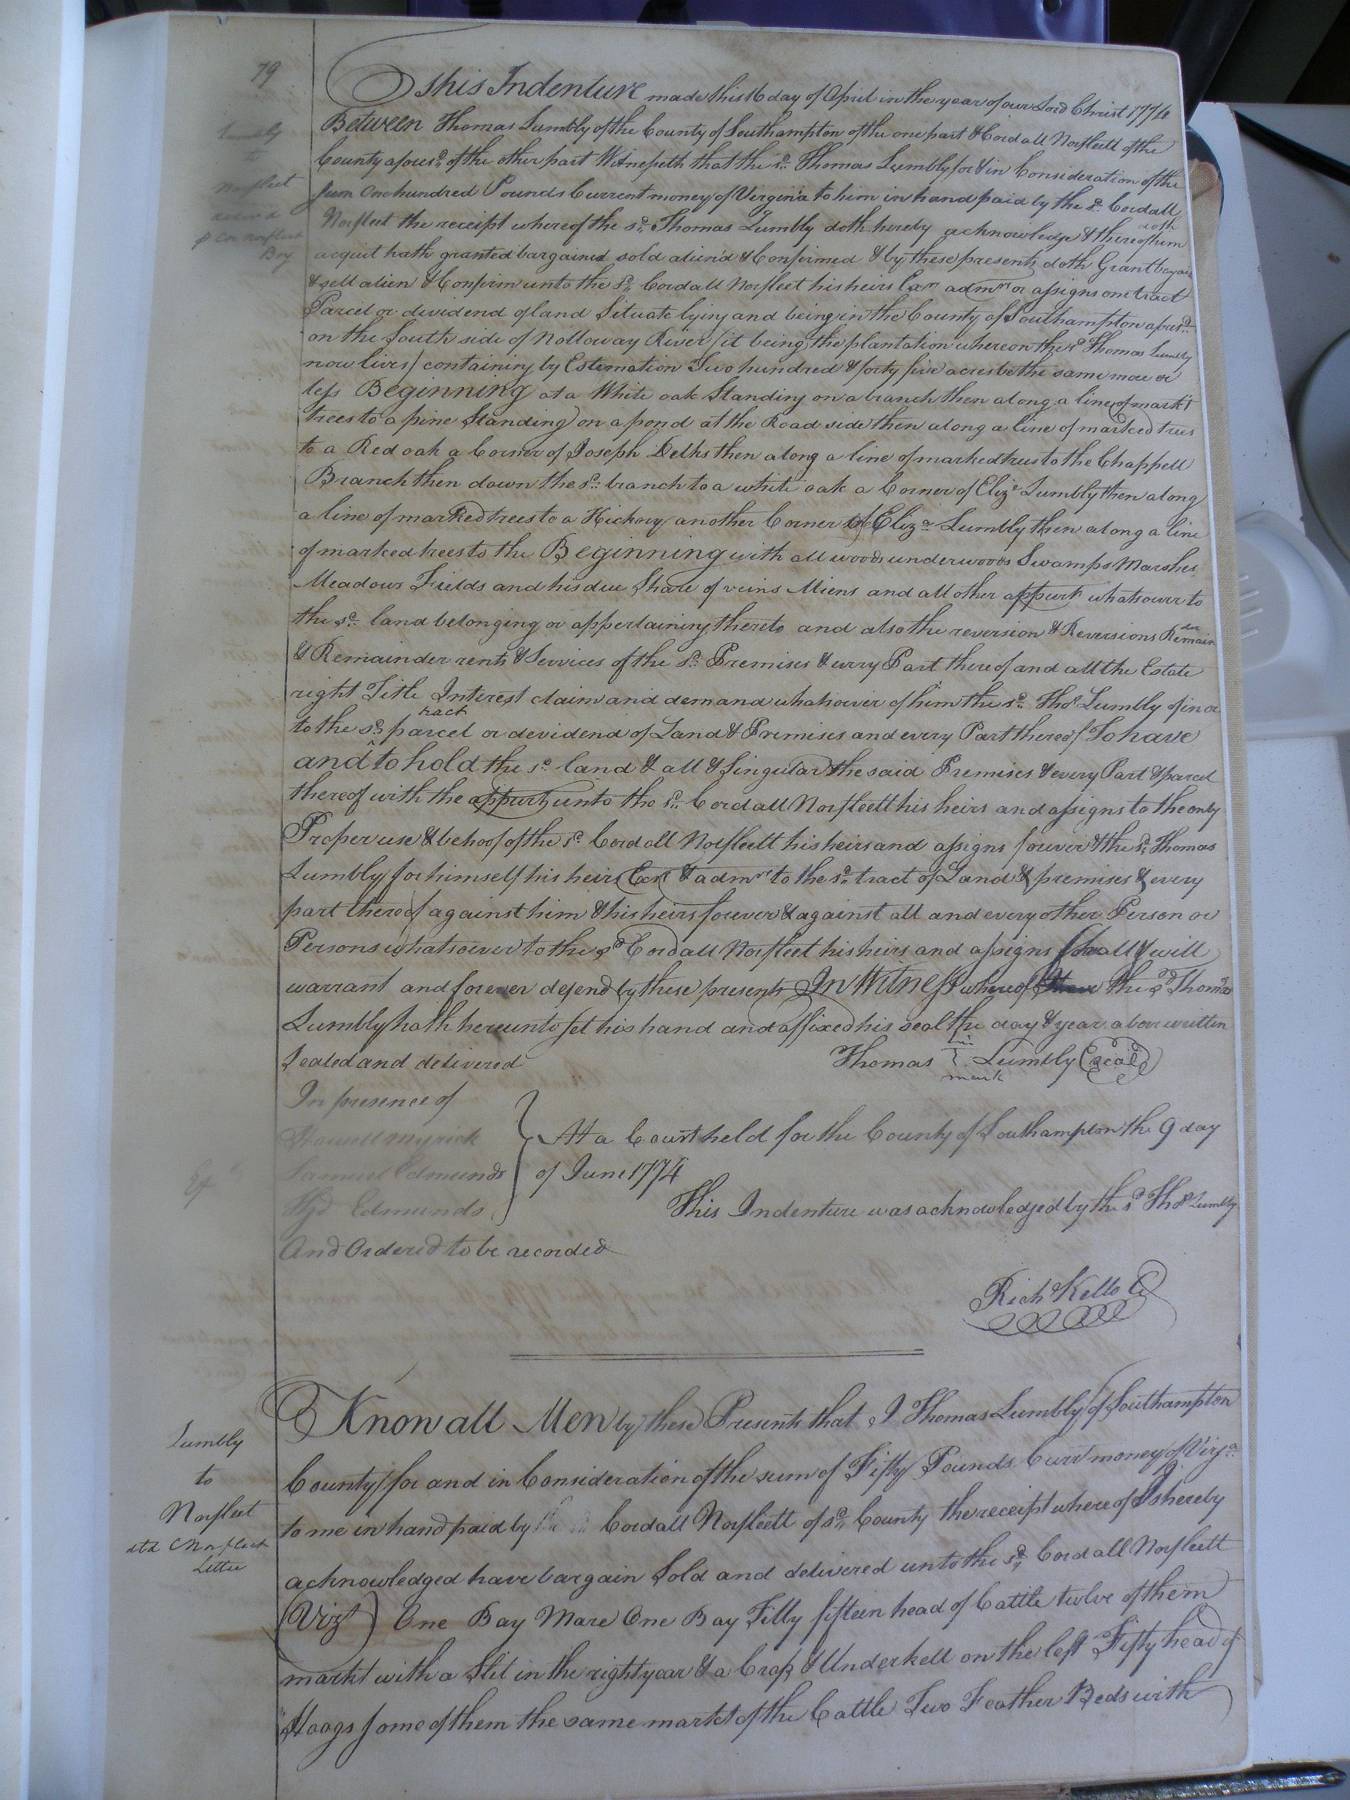 79
Lumbly
to
Norfleet
deliv'd
p Co: Norfleet
Boy
This Indenture made this 16 day of April in the year of our Lord Christ 1774
Between Thomas Lumbly of the County of Southampton of the one part & Cordall Norfleett of the
County afores.d of the other part Witnesseth that the s.d Thomas Lumbly for & in Consideration of the
Sum One hundred Pounds Current money of Verginia to him in hand paid by the s.d Cordall
Norfleet the receipt whereof the s.d Thomas Lumbly doth hereby acknowledge & thereof him doth
acquit hath granted bargained sold alien'd & Confirmed & by these presents doth Grant bargain
& sell alien & Confirm unto the s.d Cordall Norfleet his heirs Exrs admrs or assigns one tract
Parcel or dividend of land Situate lying and being in the County of Southampton afores.d
on the South side of Nolloway River (it being the plantation whereon the s.d Thomas Lumbly
now lives) containing by Estemation Two hundred & forty five acres be the same more or
less Beginning at a White oak Standing on a branch then along a line of markt
trees to a pine Standing on a pond at the Road side then along a line of marked trees
to a Red oak a Corner of Joseph Delks then along a line of marked trees to the Chappell
Branch then down the s.d branch to a white oak a Corner of Eliz.a Lumbly then along
a line of marked trees to a Hickory another Corner of Eliz.a Lumbly then along a line
of marked trees to the Beginning with all woods underwoods Swamps Marshes
Meadows Fields and his due Share of veins Miens and all other appurts whatsoever to
the s.d land belonging or appertaining thereto and also the reversion & Reversions Remainder
& Remainder rents & Services of the s.d Premises & every Part thereof and all the Estate
right Title Interest claim and demand whatsoever of him the s.d Tho.s Lumbly of in or
to the s.d tract parcel or devidend of Land & Premises and every Part thereof To have
and to hold the s.d land & all & Singular the said Premises & every Part & parcel
thereof with the appurts unto the s.d Cordall Norfleett his heirs and assigns to the only
Proper use & behoof of the s.d Cordall Norfleett his heirs and assigns forever & the s.d Thomas
Lumbly for himself his heirs Exrs & admrs to the s.d tract of Land & premises & every
part thereof against him & his heirs forever & against all and every other Person or
Persons whatsoever to the s.d Cordall Norfleet his heirs and assigns Shall & will
warrant and forever defend by these presents In Witness whereof the s.d Thomas
Lumbly hath hereunto set his hand and affixed his seal the day & year above written
Sealed and delivered Thomas his mark Lumbly (Seal)
In presence of
Howell Myrick
Samuel Edmunds
Edmunds
At a Court held for the County of Southampton the 9 day
of June 1774
This Indenture was acknowledged by the s.d Tho.s Lumbly
And Ordered to be recorded
Rich.d Kello C
Lumbly
to
Norfleet
Know all Men by these Presents that I Thomas Lumbly of Southampton
County for and in Consideration of the sum of Fifty Pounds Curr.t money of Virg.a
to me in hand paid by Cordall Norfleett of s.d County the receipt whereof Is hereby
acknowledged have bargain Sold and delivered unto the s.d Cordall Norfleett
(Vizt) One Bay Mare One Bay Filly fifteen head of Cattle twelve of them
markt with a Slit in the right year & a Crop & Underkell on the left Fifty head of
Hoogs some of them the same markt of the Cattle Two Feather Beds with